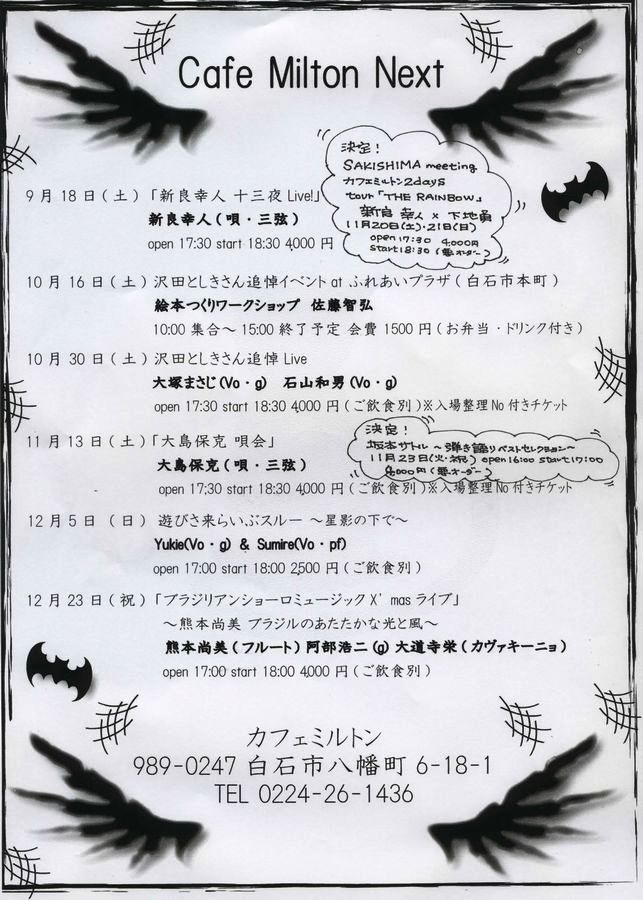 Cafe Milton Next
決定！
SAKISHIMA meeting
カフェミルトン2days
tour「THE RAINBOW」
新良 幸人 × 下地勇
11月20日(土)・21日(日)
open 17:30 4,000円
start 18:30 (要オーダー)
9月18日(土)「新良幸人 十三夜 Live!」
新良幸人(唄・三弦)
open 17:30 start 18:30 4,000 円
10月16日(土)沢田としきさん追悼イベント at ふれあいプラザ(白石市本町)
絵本つくりワークショップ 佐藤智弘
10:00 集合～15:00 終了予定 会費 1500 円(お弁当・ドリンク付き)
10月30日(土)沢田としきさん追悼 Live
大塚まさじ(Vo・g) 石山和男(Vo・g)
open 17:30 start 18:30 4,000 円(ご飲食別)※入場整理No付きチケット
決定！
坂本サトル ～弾き語りベストセレクション～
11月23日(火・祝) open 16:00 start 17:00
4,000円(要オーダー)
11月13日(土)「大島保克 唄会」
大島保克(唄・三弦)
open 17:30 start 18:30 4,000 円(ご飲食別)※入場整理No付きチケット
12月5日 (日) 遊びさ来らいぶスルー ～星影の下で～
Yukie(Vo・g) & Sumire(Vo・pf)
open 17:00 start 18:00 2,500 円(ご飲食別)
12月23日(祝)「ブラジリアンショーロミュージックX' mas ライブ」
～熊本尚美 ブラジルのあたたかな光と風～
熊本尚美(フルート)阿部浩二(g)大道寺栄(カヴァキーニョ)
open 17:00 start 18:00 4,000 円(ご飲食別)
カフェミルトン
989-0247 白石市八幡町 6-18-1
TEL 0224-26-1436